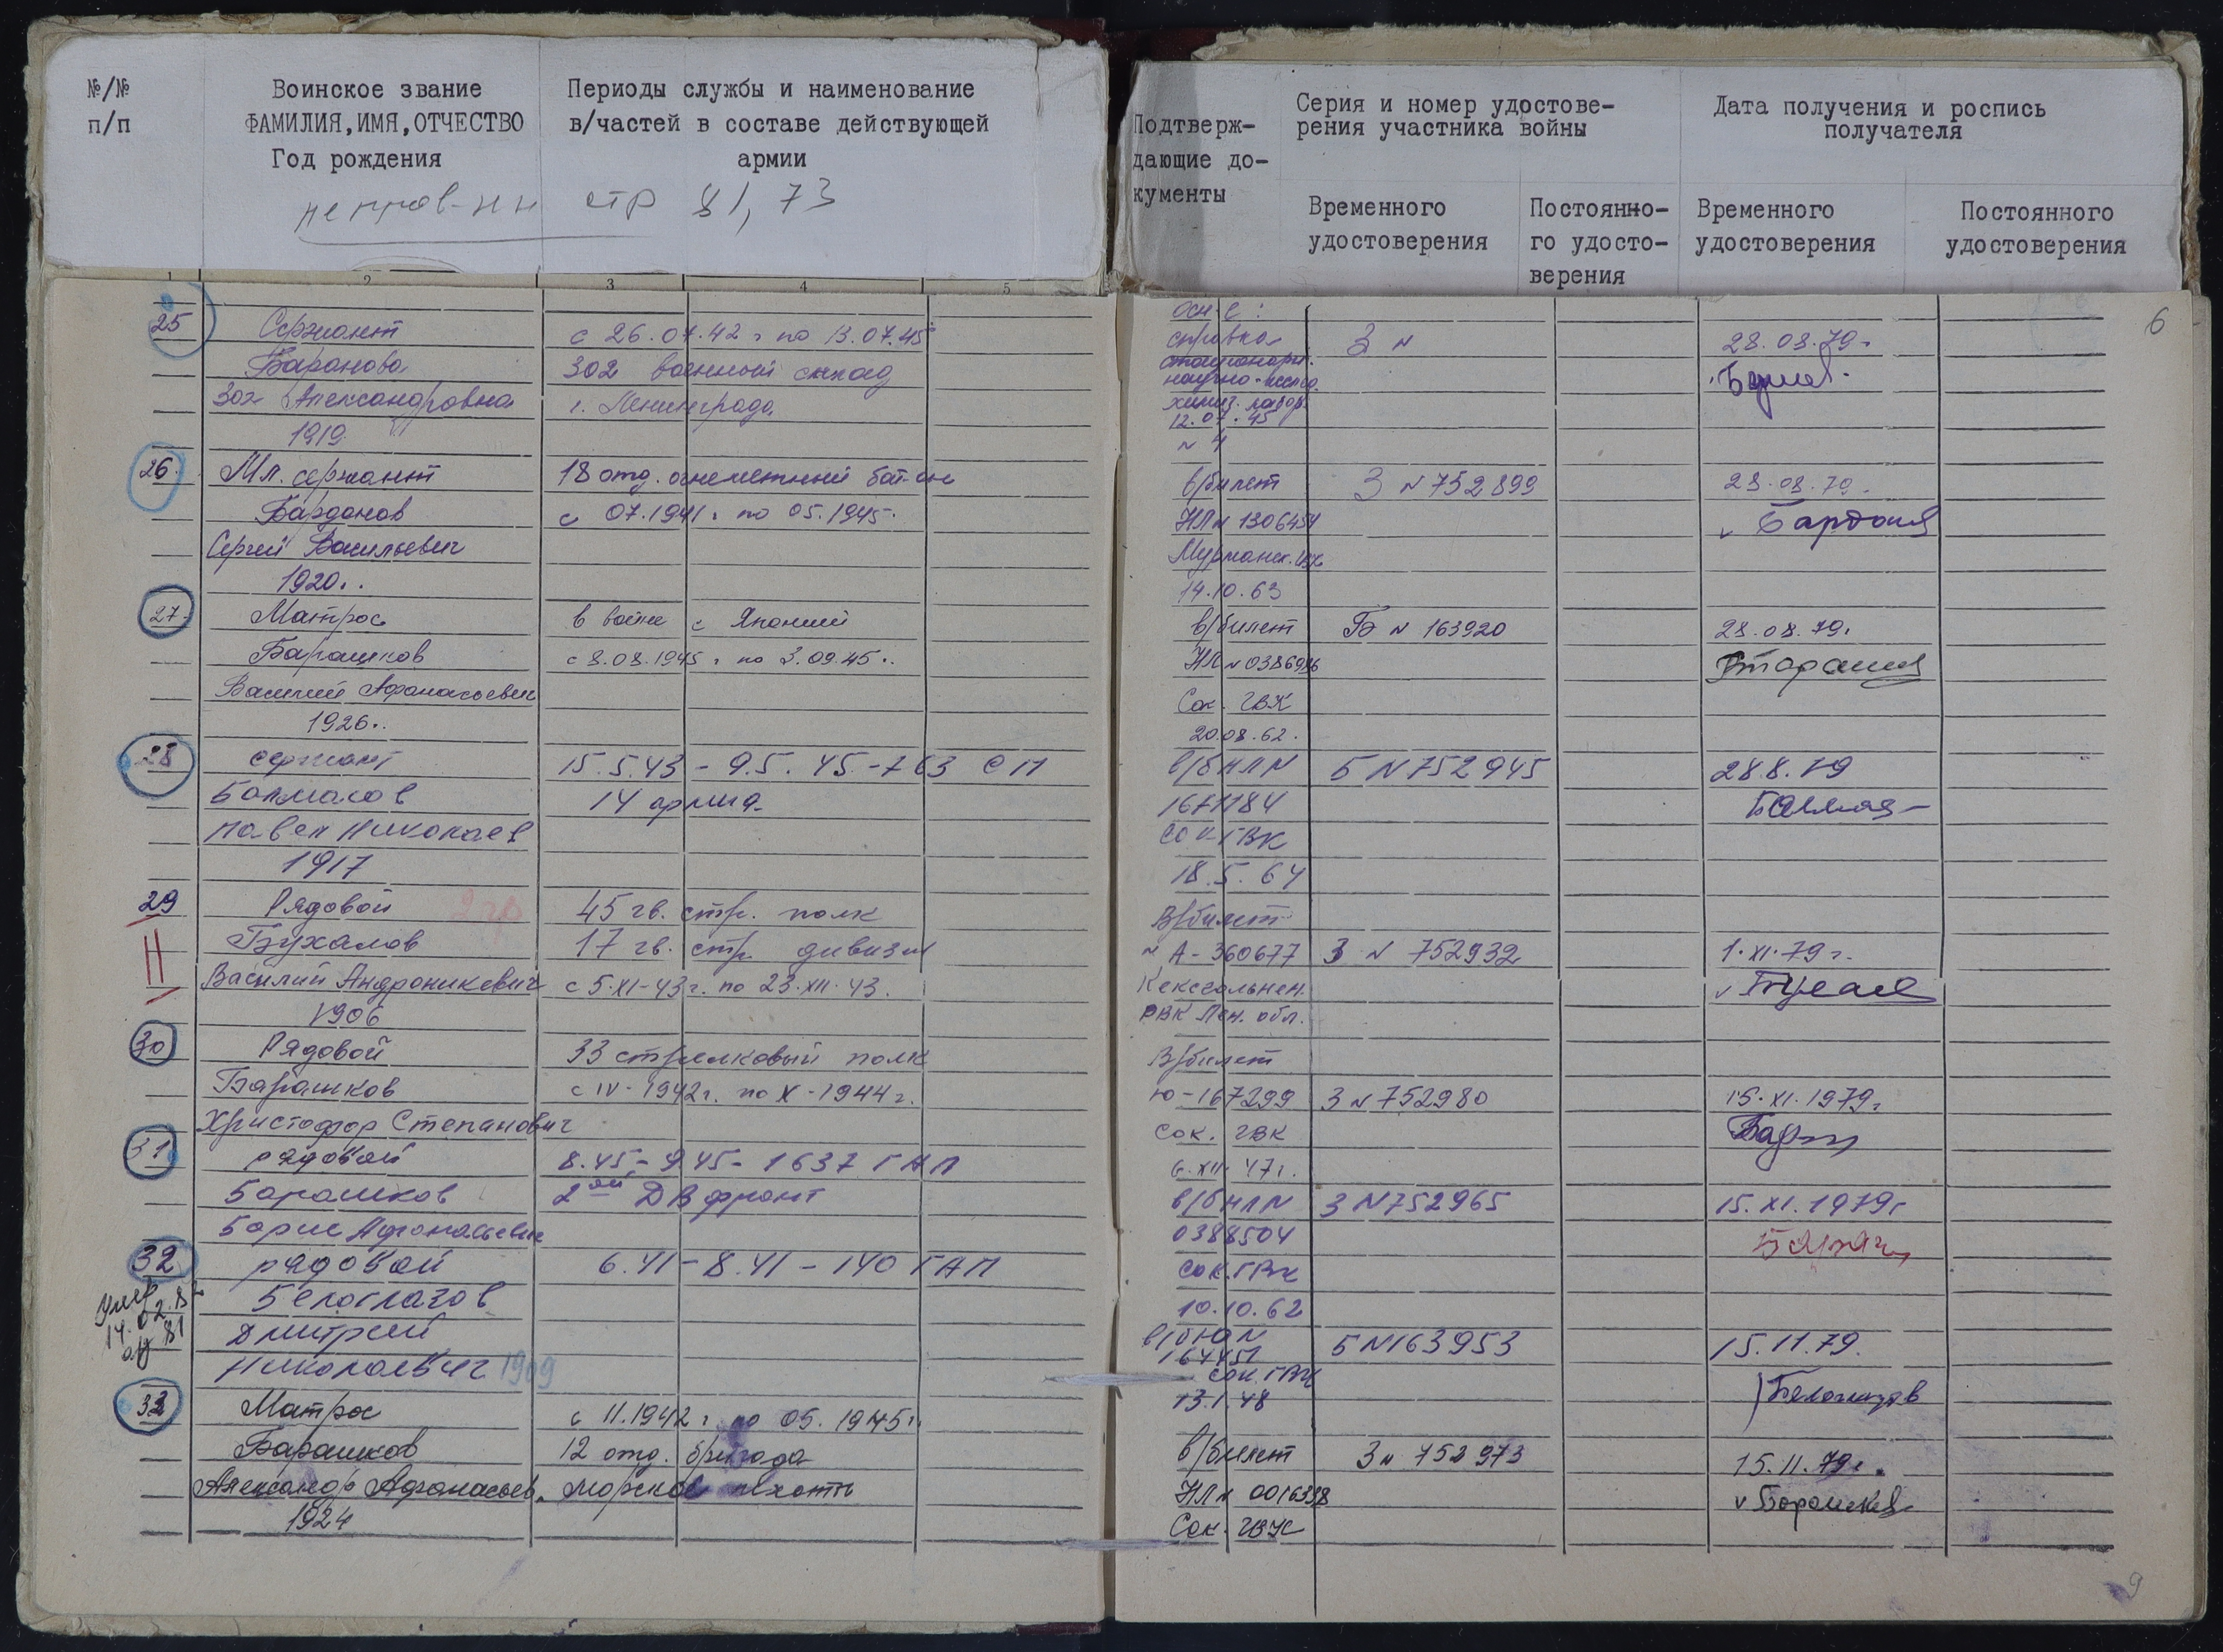 №/№
п/п
Воинское звание
ФАМИЛИЯ, ИМЯ, ОТЧЕСТВО
Год рождения
Периоды службы и наименование
в/частей в составе действующей
армии
стр 81, 73
Подтверж-
дающие до-
кументы
Серия и номер удостове-
рения участника войны
Дата получения и роспись
получателя
Временного
удостоверения
Постоянно-
го удосто-
верения
Временного
удостоверения
Постоянного
удостоверения
1 2 3 4 5
6
25 Сержант с 26.07.42 г по 13.07.45
Баранова 302 военный склад
Зоя Александровна г. Ленинграда
1919
справка
научно-исслед.
химич. лабор.
12.07.45
N 4
3 N
28.08.79г.
26. Мл. сержант 18 отд. огнеметный бат-он
Барданов с 07.1941 г по 05.1945.
Сергей Васильевич
1920..
в/билет 3 N 752899 28.08.79.
НЛ N 1306454
Мурманск.
14.10.63
27. Матрос в войне с Японией
Барашков с 8.08.1945 г по 3.09.45..
Василий Афанасьевич
1926..
в/билет Б N 163920 28.08.79г
НЛ N 0386986
Сок. ГВК
20.08.62.
28 сержант 15.5.43 - 9.5.45 - 763 СП
Балмасов 14 армия
Павел Николаев
1917
в/б НЛ N Б N 752945 28.8.79
1671184
Сок ГВК
18.5.64
29 Рядовой 2 гр 45 гв. стр. полк
Бухалов 17 гв. стр. дивизии
Василий Андроникевич с 5-XI-43г. по 23.XII.43.
1906
В/билет
N А-360677 3 N 752932 1.XI.79г.
Кексгольмск.
РВК Лен. обл.
30 Рядовой 33 стрелковый полк
Барашков с IV-1942г. по X-1944г.
Христофор Степанович
В/билет
Ю-167299 3 N 752980 15.XI.1979г
Сок. ГВК
6.XII.47г.
31 рядовой 8.45 - 9.45 - 1637 ГАП
Барашков 2ой ДВ фронт
Борис Афанасьевич
в/б НЛ N 3 N 752965 15.XI.1979г
0388504
Сок. ГВК
10.10.62
32 рядовой 6.41 - 8.41 - 140 ГАП
Белоглазов
Дмитрий
Николаевич 1909
Умер
14.02.82
в/б Ю N Б N 163953 15.11.79.
164451
Сок. ГВК
13.1.48
Белоглазов
33 Матрос с 11.1942 г по 05.1945 г.
Барашков 12 отд. бригада
Александр Афанасьев. морской пехоты
1924
в/билет 3 N 752973 15.11.79г.
НЛ N 0016338 Барашков
Сок. ГВК
9